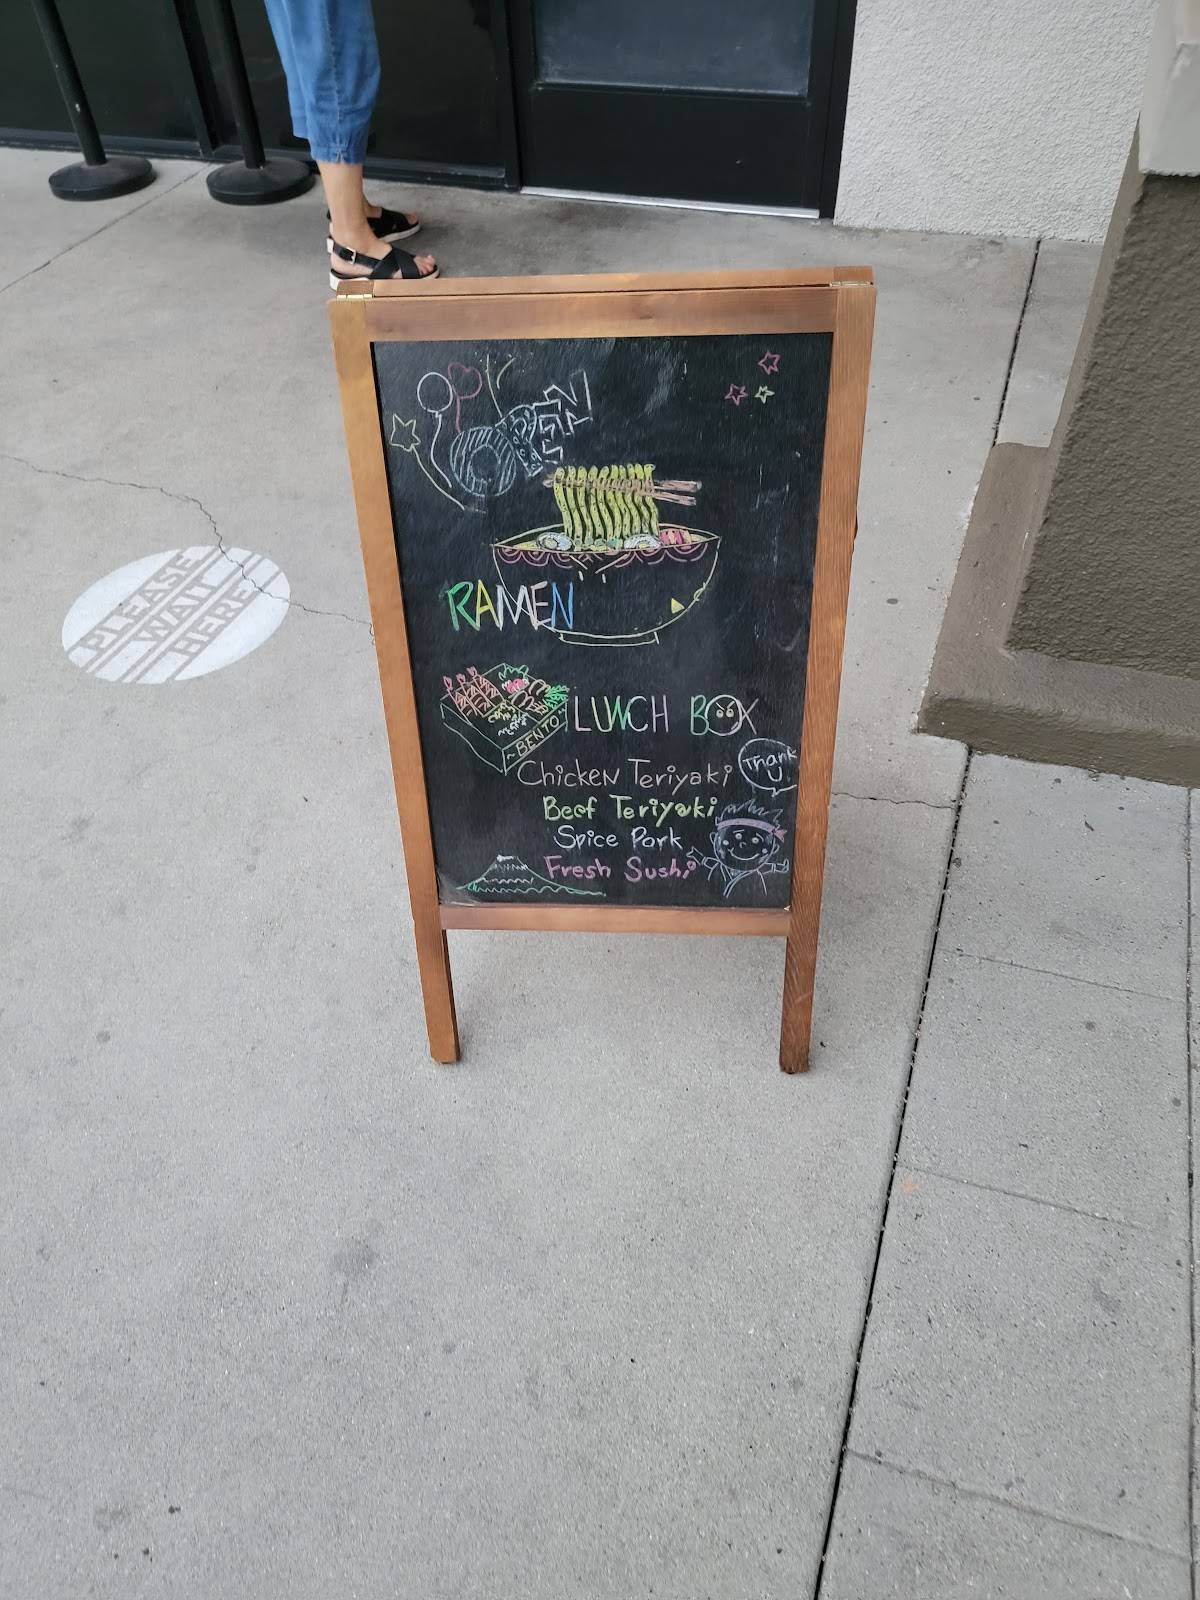 OPEN
RAMEN
LUNCH BOX
~BENTO~
Chicken Teriyaki
Thank
U!
Beef Teriyaki
Spice Pork
Fresh Sushi
PLEASE
WAIT
HERE